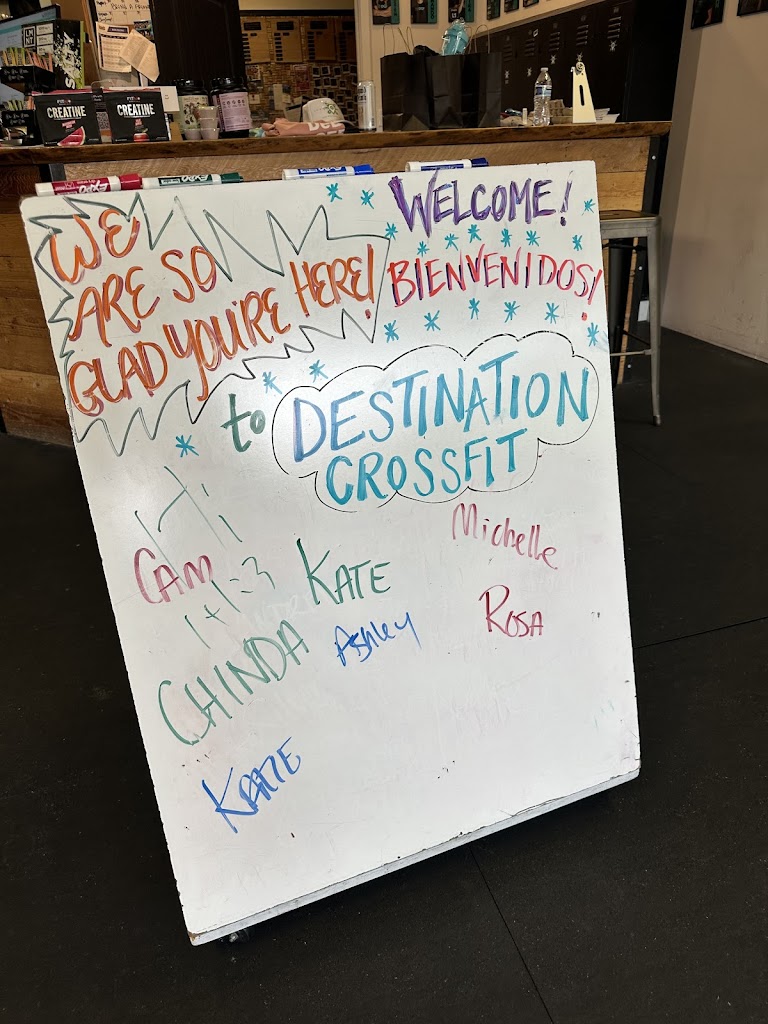 CREATINE
CREATINE
EXPO
EXPO
WE
ARE SO
GLAD YOU'RE HERE!
WELCOME!
BIENVENIDOS!
to DESTINATION
CROSSFIT
Hi
CAM
1+1=3
KATE
Michelle
ROSA
CHINDA
Ashley
KATIE